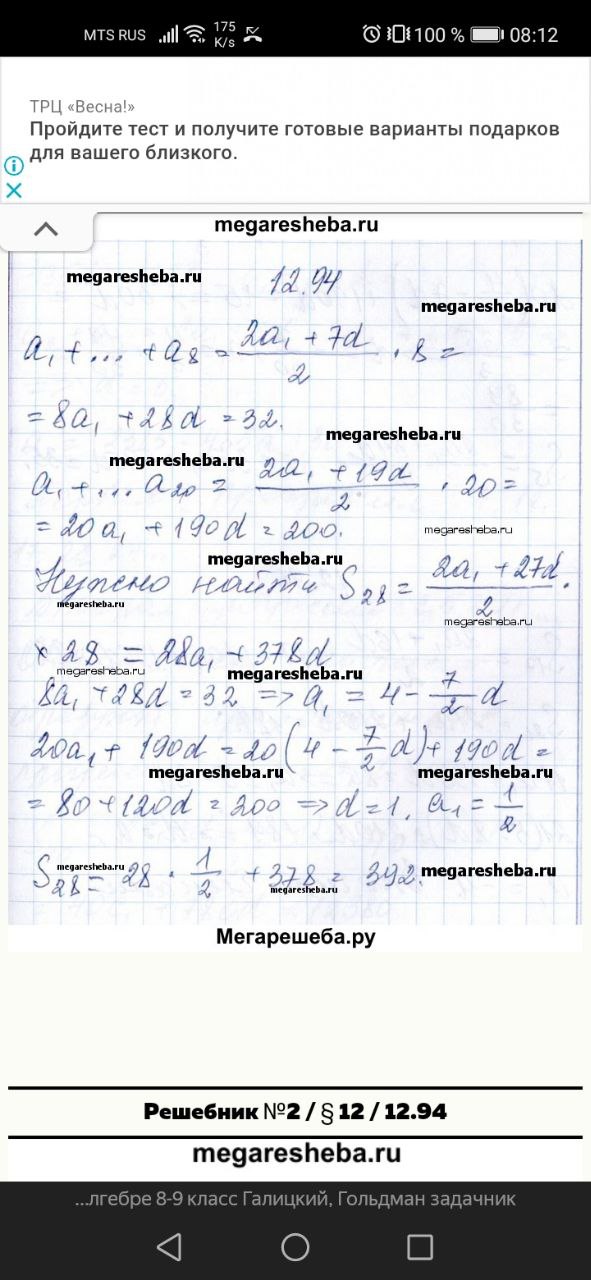 MTS RUS 175 K/s 100 % 08:12
ТРЦ «Весна!»
Пройдите тест и получите готовые варианты подарков
для вашего близкого.
megaresheba.ru
megaresheba.ru 12.94
megaresheba.ru
a₁ + ... + a₈ = (2a₁ + 7d)/2 · 8 =
= 8a₁ + 28d = 32.
megaresheba.ru
megaresheba.ru
a₁ + ... a₂₀ = (2a₁ + 19d)/2 · 20 =
= 20a₁ + 190d = 200.
megaresheba.ru
megaresheba.ru
Нужно найти S₂₈ = (2a₁ + 27d)/2 ·
megaresheba.ru
megaresheba.ru
× 28 = 28a₁ + 378d
megaresheba.ru
megaresheba.ru
8a₁ + 28d = 32 => a₁ = 4 - 7/2 d
20a₁ + 190d = 20(4 - 7/2 d) + 190d =
megaresheba.ru
megaresheba.ru
= 80 + 120d = 200 => d = 1, a₁ = 1/2
megaresheba.ru
megaresheba.ru
S₂₈ = 28 · 1/2 + 378 = 392.
megaresheba.ru
Мегарешеба.ру
Решебник №2 / § 12 / 12.94
megaresheba.ru
...лгебре 8-9 класс Галицкий, Гольдман задачник